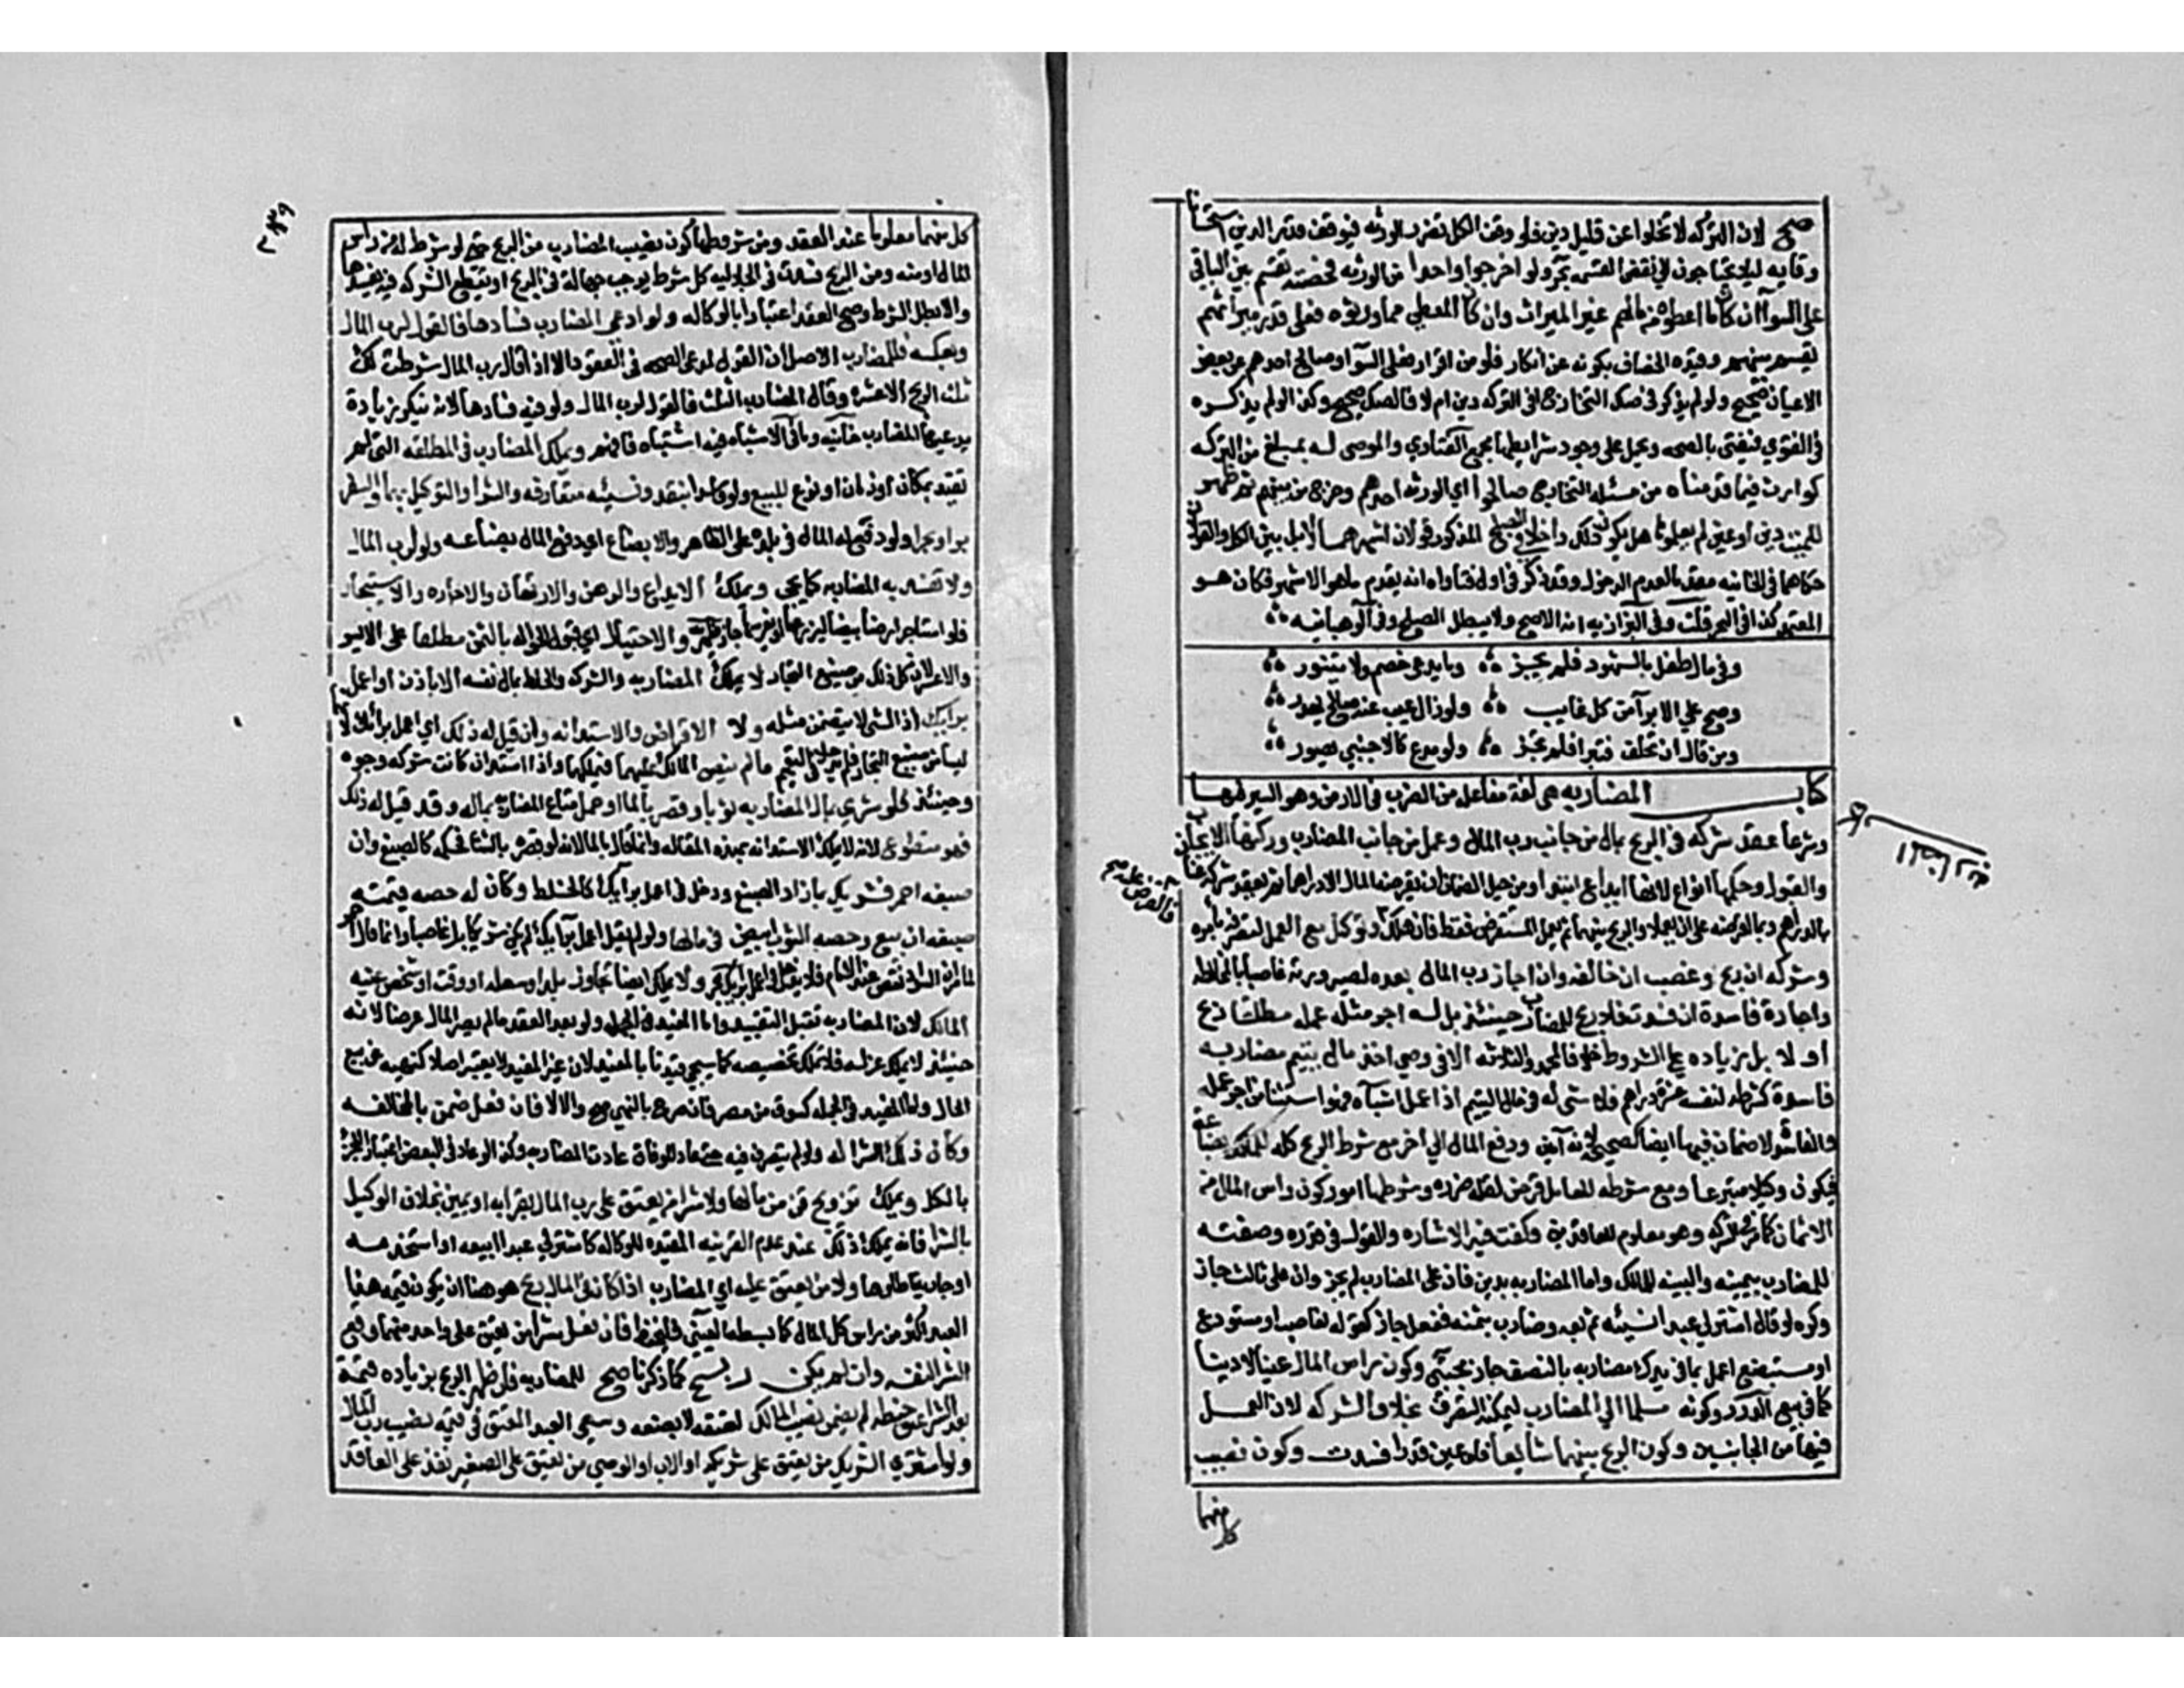 صح لان التركه لا تخلوا عن قليل دين فلو وقف الكل تضرر الورثه فيوقف قدر الدين استحسانا
وقايه ليلا يحتاجون لنقض القسمه بحر ولو اخرجوا واحدا من الورثه فحصته تقسم بين الباقي
على السوآ ان كان ما اعطوه من مالهم غير الميراث وان كان المعطى مما ورثوه فعلى قدر ميراثهم
يقسم بينهم وقيده الخصاف بكونه عن انكار فلو من اقرار فعلى السوآ وصالح احدهم عن بعض
الاعيان صحيح ولو لم يذكر في صك التخارج في التركه دين ام لا فالصك صحيح وكذا لو لم يذكره
في الفتوي فيفتى بالصحه ويحمل على وجود شرايطها مجمع الفتاوي والموصى له بمبلغ من التركه
كوارث فيما قدمناه من مسئله التخارج صالحوا اي الورثه احدهم وخرج من بينهم ثم ظهر
للميت دين او عين لم يعلموها هل يكون ذلك داخلا في الصلح المذكور قولان اشهرهما لا بل بين الكل والقولان
حكاهما في الخانيه مقدما لعدم الدخول وقد ذكر في اول فتاواه انه يقدم ما هو الاشهر فكان هو
المعتمد كذا في البحر قلت وفي البزازيه انه الاصح ولا يبطل الصلح وفي الوهبانيه
وفي مال طفل بالشهود فلم يجز وما يدعي خصم ولا يتنور
وصح على الابرآ من كل غايب ولو زال عيب عنه صالح يهدر
ومن قال ان تحلف فتبرا فلم يجز ولو مدع كالاجنبي يصور
كتاب المضاربه هي لغة مفاعله من الضرب في الارض وهو السير فيها
وشرعا عقد شركه في الربح بمال من جانب رب المال وعمل من جانب المضارب وركنها الايجاب
والقبول وحكمها انواع لانها ايداع ابتدا ومن حيل الضمان ان يقرضه المال الا درهما ثم يعقد شركة عنان
بالدراهم وبما اقرضه على ان يعملا والربح بينهما ثم يعمل المستقرض فقط فان هلك وتوكيل مع العمل لتصرفه بامره
فالقرض عليه صح
وشركه ان ربح وغصب ان خالف وان اجاز رب المال بعده لصيرورته غاصبا بالمخالفه
واجارة فاسدة ان فسدت فلا ربح للمضارب حينئذ بل له اجر مثله عمله مطلقا ربح
او لا بلا زياده على المشروط خلافا لمحمد والثلاثه الا في وصي اخذ مال يتيم مضاربه
فاسدة كشرطه لنفسه عشرة دراهم فلا شي له في مال اليتيم اذا عمل اشباه فهو استثنا من اجر عمله
والفاسده لا ضمان فيها ايضا كصحيحه لانه امين ودفع المال الى آخر مع شرط الربح كله للمالك بضاعة
فيكون وكيلا متبرعا ومع شرطه للعامل قرض لقله ضرره وشرطها امور كون راس المال من
الاثمان كما مر في الشركه وهو معلوم للعاقدين وكفت فيه الاشاره والقول في قدره وصفته
للمضارب بيمينه والبينه للمالك واما المضاربه بدين فان على المضارب لم يجز وان على ثالث جاز
وكره لو قال اشتر لي عبدا نسيئه ثم بعه وضارب بثمنه ففعل جاز كقوله لغاصب او مستودع
او مستبضع اعمل بما في يدك مضاربه بالنصف جاز مجتبى وكون راس المال عينا لا دينا
كما في بيع الدرر وكونه مسلما الي المضارب ليمكنه التصرف بخلاف الشركه لان العمل
فيها من الجانبين وكون الربح بينهما شايعا فلو عين قدرا فسدت وكون نصيب
كل منهما
كتاب المضاربه
٢٣٩
كل منهما معلوما عند العقد ومن شروطها كون نصيب المضارب من الربح حتى لو شرط له من راس
المال او منه ومن الربح فسدت في الجلاليه كل شرط يوجب جهالة في الربح او يقطع الشركه فيه يفسدها
والا بطل الشرط وصح العقد اعتبارا بالوكاله ولو ادعى المضارب فسادها فالقول لرب المال
وبعكسه فللمضارب الاصل ان القول لمدعي الصحه في العقود الا اذا قال رب المال شرطت لك
ثلث الربح الا عشره وقال المضارب الثلث فالقول لرب المال ولو فيه فسادها لانه ينكر زيادة
يدعيها المضارب خانيه وما في الاشباه فيه اشتباه فافهم ويملك المضارب في المطلقه التي لم
تقيد بمكان او زمان او نوع البيع ولو فاسدا بنقد ونسيئه متعارفه والشرا والتوكيل بهما والسفر
برا وبحرا ولو دفع له المال في بلده على الظاهر والابضاع اي دفع المال بضاعه ولو لرب المال
ولا تفسد به المضاربه كما يجي ويملك الايداع والرهن والارتهان والاجاره والاستيجار
فلو استاجر ارضا بيضا ليزرعها او يغرسها جاز ظهيريه والاحتيال اي قبول الحواله بالثمن مطلقا على الايسر
والاعسر لان كل ذلك من صنيع التجار لا يملك المضاربه والشركه والخلط بمال نفسه الا باذن او اعمل
برايك اذ الشي لا يتضمن مثله ولا الاقراض والاستدانه وان قيل له ذلك اي اعمل برايك لانهما
ليسا من صنيع التجار فلم يدخلا في التعميم ما لم ينص المالك عليهما فيملكهما واذا استدان كانت شركه وجوه
وحينئذ فلو شرى بمال المضاربه ثوبا وقصر بالما او حمل متاع المضاربه بماله وقد قيل له ذلك
فهو متطوع لانه لا يملك الاستدانه بهذه المقاله وانما قال بالما لانه لو قصر بالنشا فحكمه كالصبغ وان
صبغه احمر فشريك بما زاد الصبغ ودخل في اعمل برايك كالخلط وكان له حصه قيمته
صبغه ان بيع وحصه الثوب ابيض في مالها ولو لم يقل اعمل برايك لم يكن شريكا بل غاصبا وانما قال احمر
لما مر ان السواد نقص عند الامام فلا يدخل في اعمل برايك بحر ولا يملك ايضا تجاوز بلد او سلعه او وقت او شخص عينه
المالك لان المضاربه تقبل التقييد ولو بعد العقد ما لم يصر المال عرضا لانه
حينئذ لا يملك عزله فلا يملك تخصيصه كما سيجي قيدنا بالمفيد لان غير المفيد لا يعتبر اصلا كنهيه عن بيع
الحال واما المفيد في الجمله كسوق من مصر فان صرح بالنهي صح والا لا فان فعل ضمن بالمخالفه
وكان ذلك الشرا له ولو لم يتصرف فيه حتى عاد للوفاق عادت المضاربه وكذا لو عاد في البعض اعتبارا للجزء
بالكل ويملك تزويج قن من مالها ولا شرا من يعتق على رب المال بقرابه او يمين بخلاف الوكيل
بالشرا فانه يملك ذلك عند عدم القرينه المقيده للوكاله كاشتر لي عبدا ابيعه او استخدمه
او جاريه اطاها ولا من يعتق عليه اي المضارب اذا كان في المال ربح هو هنا ان يكون قيمه هذا
العبد اكثر من راس كل المال كما بسطه العيني فليحفظ فان فعل شرا من يعتق على واحد منهما وقع
الشرا لنفسه وان لم يكن ربح كما ذكرنا صح للمضاربه فلو ظهر الربح بزياده قيمته
بعد الشرا عتق حظه لم يضمن نصيب المالك لعتقه لا بصنعه وسعى العبد المعتق في قيمه نصيب رب المال
ولو اشترى الشريك من يعتق على شريكه او الاب او الوصي من يعتق على الصغير نفذ على العاقد